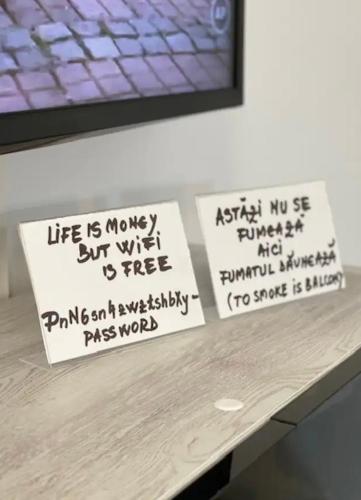 LIFE IS MONEY
BUT WiFi
IS FREE
PnN6snhzwztshbXy-
PASSWORD
ASTĂZI NU SE
FUMEAZĂ
AiCi
FUMATUL DĂUNEAZĂ
(TO SMOKE iS BALCONY)